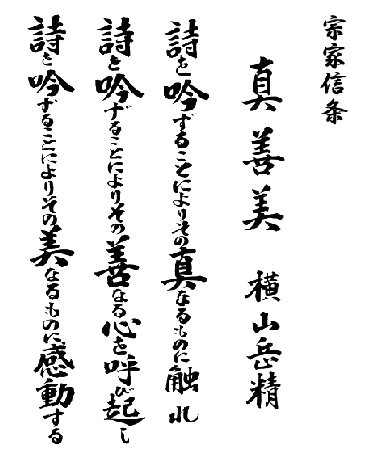 宗家信条
真善美 横山岳精
詩を吟ずることによりその真なるものに触れ
詩を吟ずることによりその善なる心を呼び起し
詩を吟ずることによりその美なるものに感動する